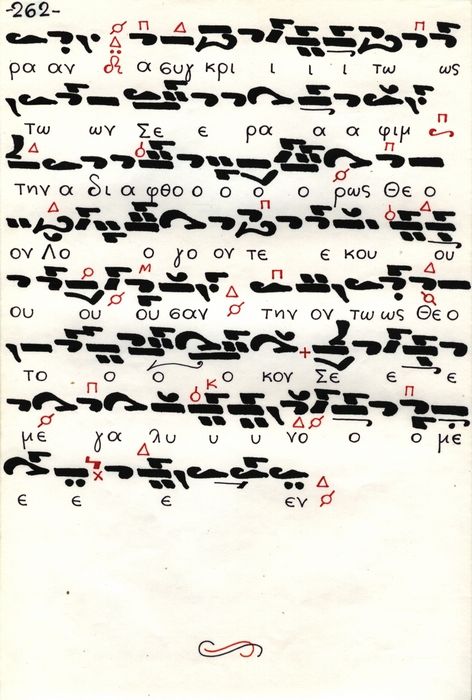 -262-
ρα αν α συγ κρι ι ι ι τω ως
Τω ων Σε ε ρα α α φιμ
την α δι α φθο ο ο ο ο ρως Θε ο
ον Λο ο γο ον τε ε κου ου
ου ου ου σαν την ον τω ως Θε ο
το ο ο ο κον Σε ε ε
με γα λυ υ υ νο ο ο με
ε ε ε εν